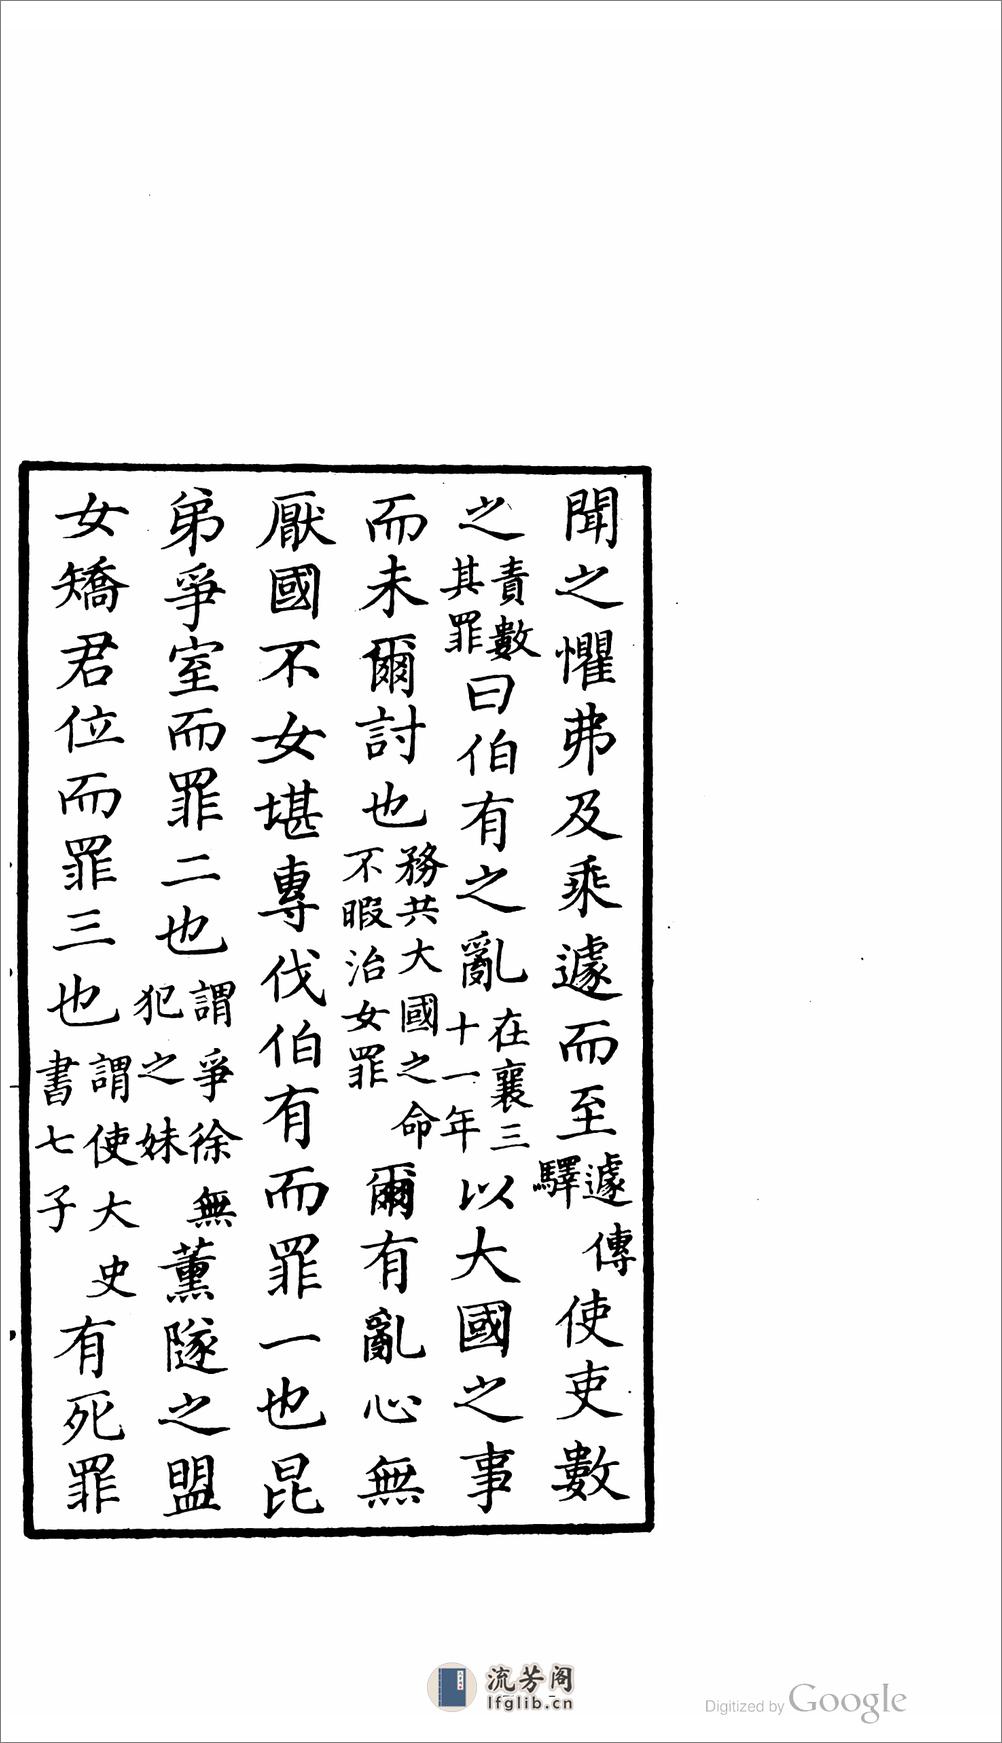 聞之懼弗及乘遽而至遽傳驛使吏數
之責數其罪曰伯有之亂在襄三十一年以大國之事
而未爾討也務共大國之命不暇治女罪爾有亂心無
厭國不女堪專伐伯有而罪一也昆
弟爭室而罪二也謂爭徐無犯之妹薰隧之盟
女矯君位而罪三也謂使大史書七子有死罪
流芳阁
lfglib.cn
Digitized by Google